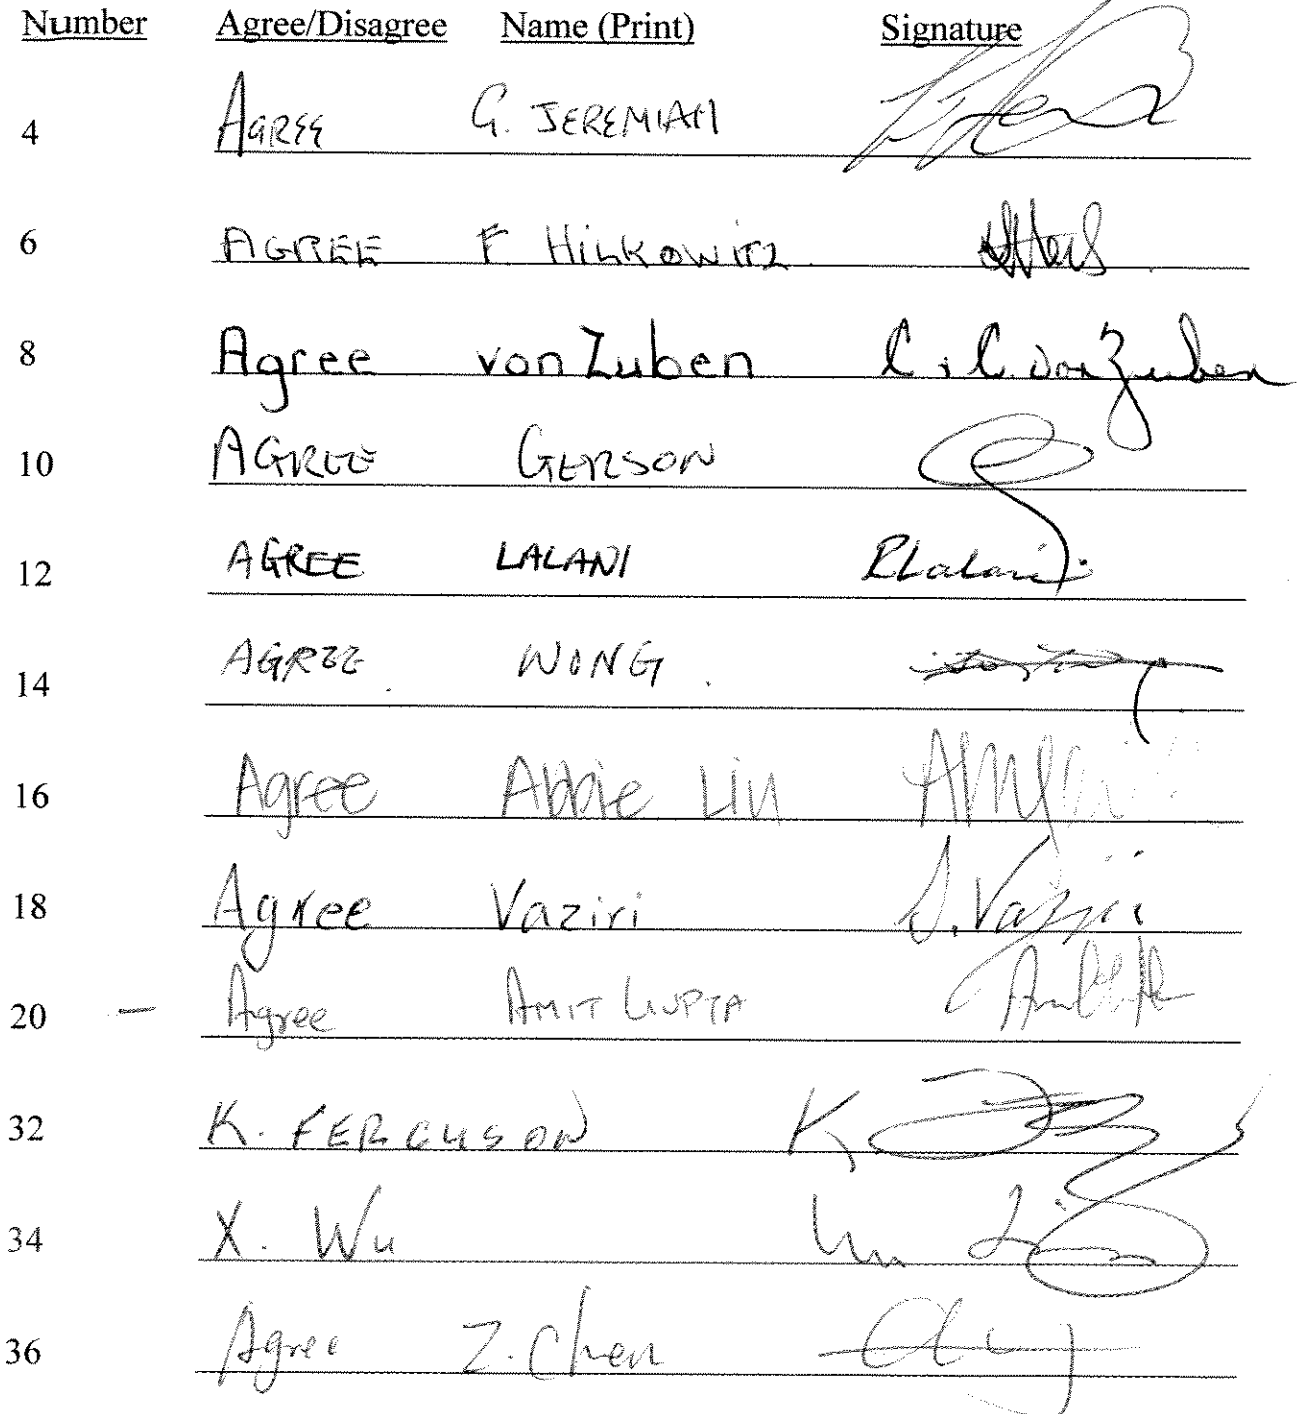 Number Agree/Disagree Name (Print) Signature
4 AGREE G. JEREMIAH
6 AGREE F HILKOWITZ
8 Agree von Zuben C. C. von Zuben
10 AGREE GERSON
12 AGREE LALANI RLalani
14 AGREE WONG
16 Agree Abbie Liu
18 Agree Vaziri S. Vaziri
20 – Agree AMIT GUPTA
32 K. FERGUSON K
34 X. Wu
36 Agree Z. Chen